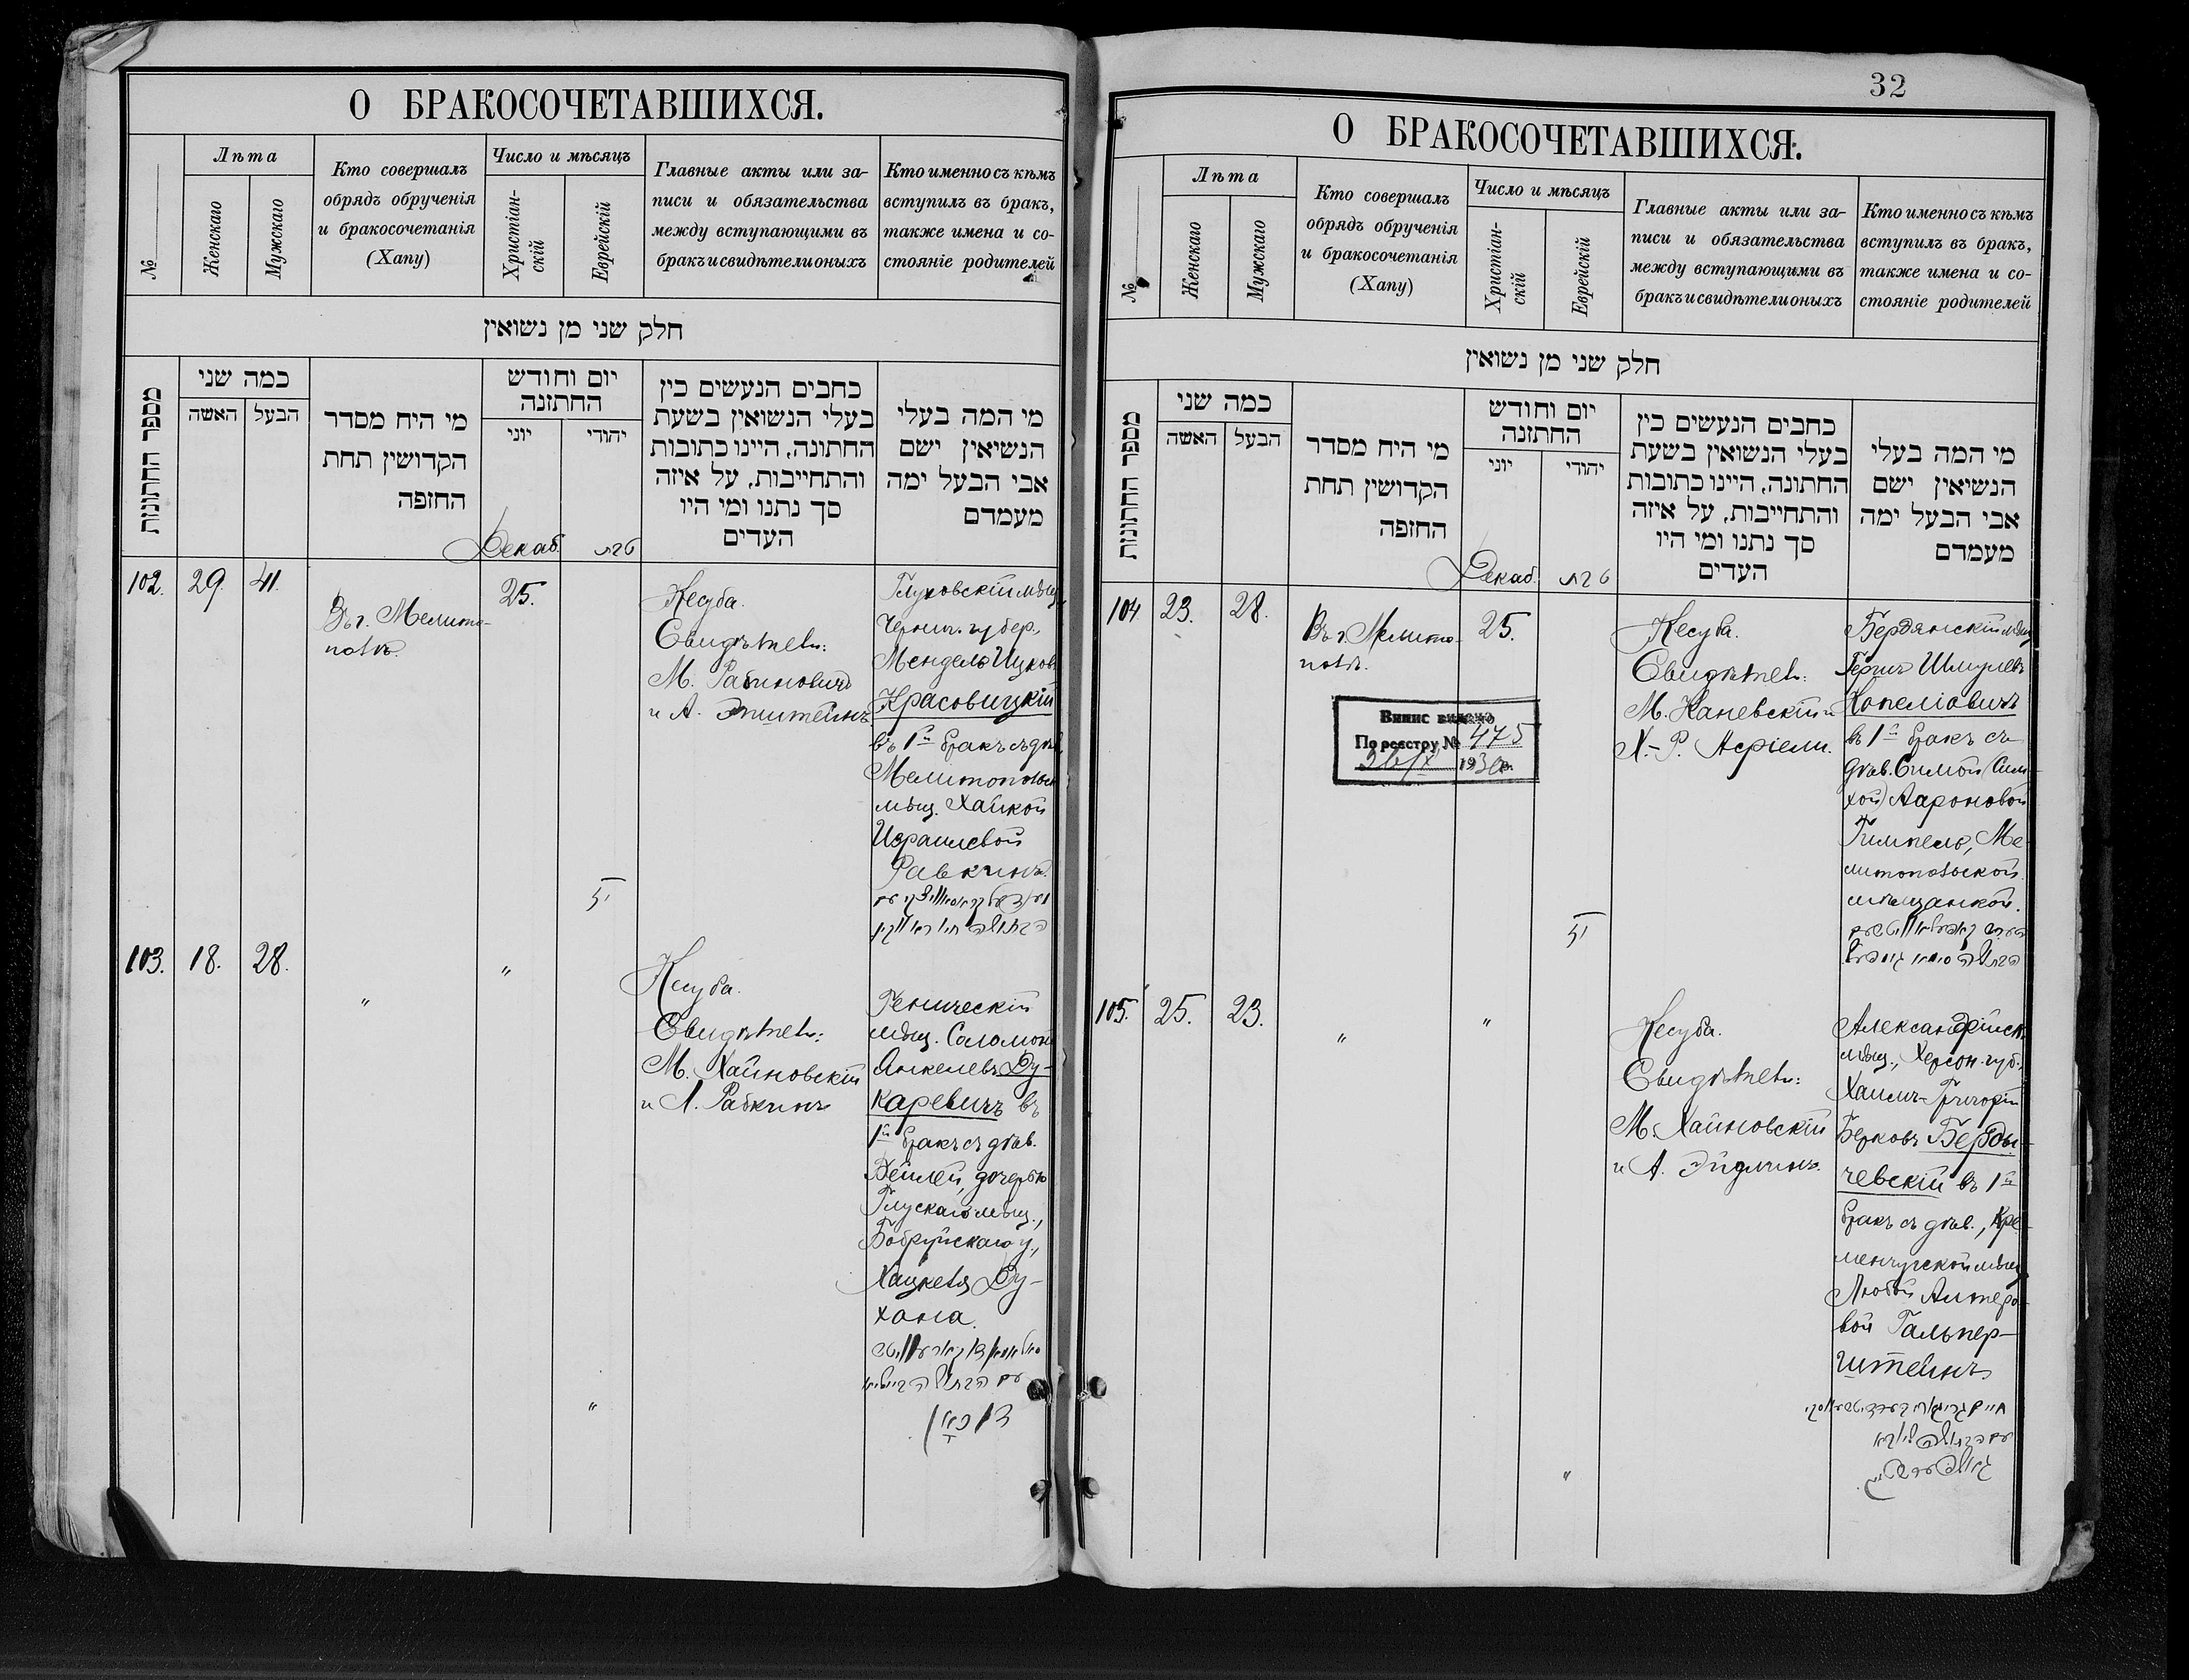 О БРАКОСОЧЕТАВШИХСЯ.
№
Лѣта
Женскаго
Мужскаго
Кто совершалъ
обрядъ обрученія
и бракосочетанія
(Хапу)
Число и мѣсяцъ
Христіан-
скій
Еврейскій
Главные акты или за-
писи и обязательства
между вступающими въ
бракъ и свидѣтели оныхъ
Кто именно съ кѣмъ
вступилъ въ бракъ,
также имена и со-
стояніе родителей
חלק שני מן נשואין
מספר החתונות
כמה שני
האשה
הבעל
מי היח מסדר
הקדושין תחת
החזפה
יום וחודש
החתזנה
יוני
יהודי
כחבים הנעשים כין
בעלי הנשואין בשעת
החתונה, היינו כתובות
והתחייבות, על איזה
סך נתנו ומי היו
העדים
מי המה בעלי
הנשיאין ישם
אבי הבעל ימה
מעמדם
Декаб.
טבת
102.
29.
41.
Въ г. Мелито-
полѣ.
25.
טו
Кесуба.
Свидѣтели:
М. Рабиновичъ
и А. Эпштейнъ
Глуховскій мѣщ.
Черниг. губер.,
Мендель Ицковъ
Красовицкій
въ 1й бракъ съ дѣв.
Мелитопольск.
мѣщ. Хайкой
Израилевой
Равкинъ.
103.
18.
28.
"
"
"
Кесуба.
Свидѣтели:
М. Хайновскій
и Л. Рабкинъ
Геническій
мѣщ. Соломонъ
Анкелевъ Ду-
каревичъ въ
1й бракъ съ дѣв.
Бейлей, дочерью
Глускаго мѣщ.,
Бобруйскаго у.,
Хацкеля Ду-
хана.
32
О БРАКОСОЧЕТАВШИХСЯ.
№
Лѣта
Женскаго
Мужскаго
Кто совершалъ
обрядъ обрученія
и бракосочетанія
(Хапу)
Число и мѣсяцъ
Христіан-
скій
Еврейскій
Главные акты или за-
писи и обязательства
между вступающими въ
бракъ и свидѣтели оныхъ
Кто именно съ кѣмъ
вступилъ въ бракъ,
также имена и со-
стояніе родителей
חלק שני מן נשואין
מספר החתונות
כמה שני
האשה
הבעל
מי היח מסדר
הקדושין תחת
החזפה
יום וחודש
החתזנה
יוני
יהודי
כחבים הנעשים כין
בעלי הנשואין בשעת
החתונה, היינו כתובות
והתחייבות, על איזה
סך נתנו ומי היו
העדים
מי המה בעלי
הנשיאין ישם
אבי הבעל ימה
מעמדם
Декаб.
טבת
104
23.
28.
Въ г. Мелито-
полѣ.
25.
טו
Випис видано
По реестру № 475
193 р.
Кесуба.
Свидѣтели:
М. Каневскій и
Х.-Р. Асріели.
Бердянскій мѣщ.
Герцъ Шмулевъ
Копеліовичъ
въ 1й бракъ съ
дѣв. Симой (Сим-
хой) Аароновой
Гимпель, Ме-
литопольской
мѣщанкой.
105.
25.
23.
"
"
"
Кесуба.
Свидѣтели:
М. Хайновскій
и А. Эйдлинъ.
Александрійск.
мѣщ., Херсон. губ.,
Хаимъ-Григорій
Берковъ Берды-
чевскій въ 1й
бракъ съ дѣв., Кре-
менчугской мѣщ.
Любой Алтеро-
вой Гальпер-
штейнъ